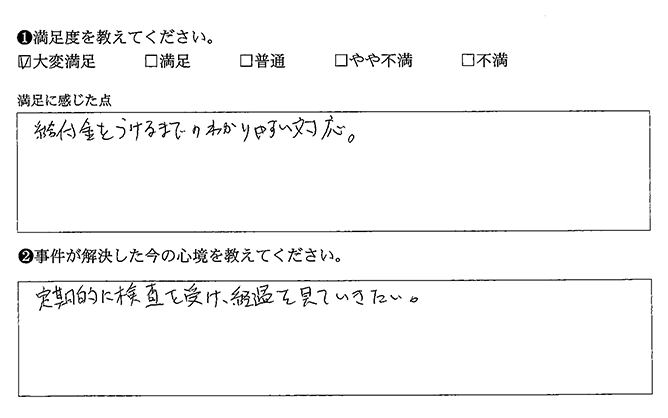 ❶満足度を教えてください。
☑大変満足 □満足 □普通 □やや不満 □不満
満足に感じた点
給付金をうけるまでのわかりやすい対応。
❷事件が解決した今の心境を教えてください。
定期的に検査を受け、経過を見ていきたい。